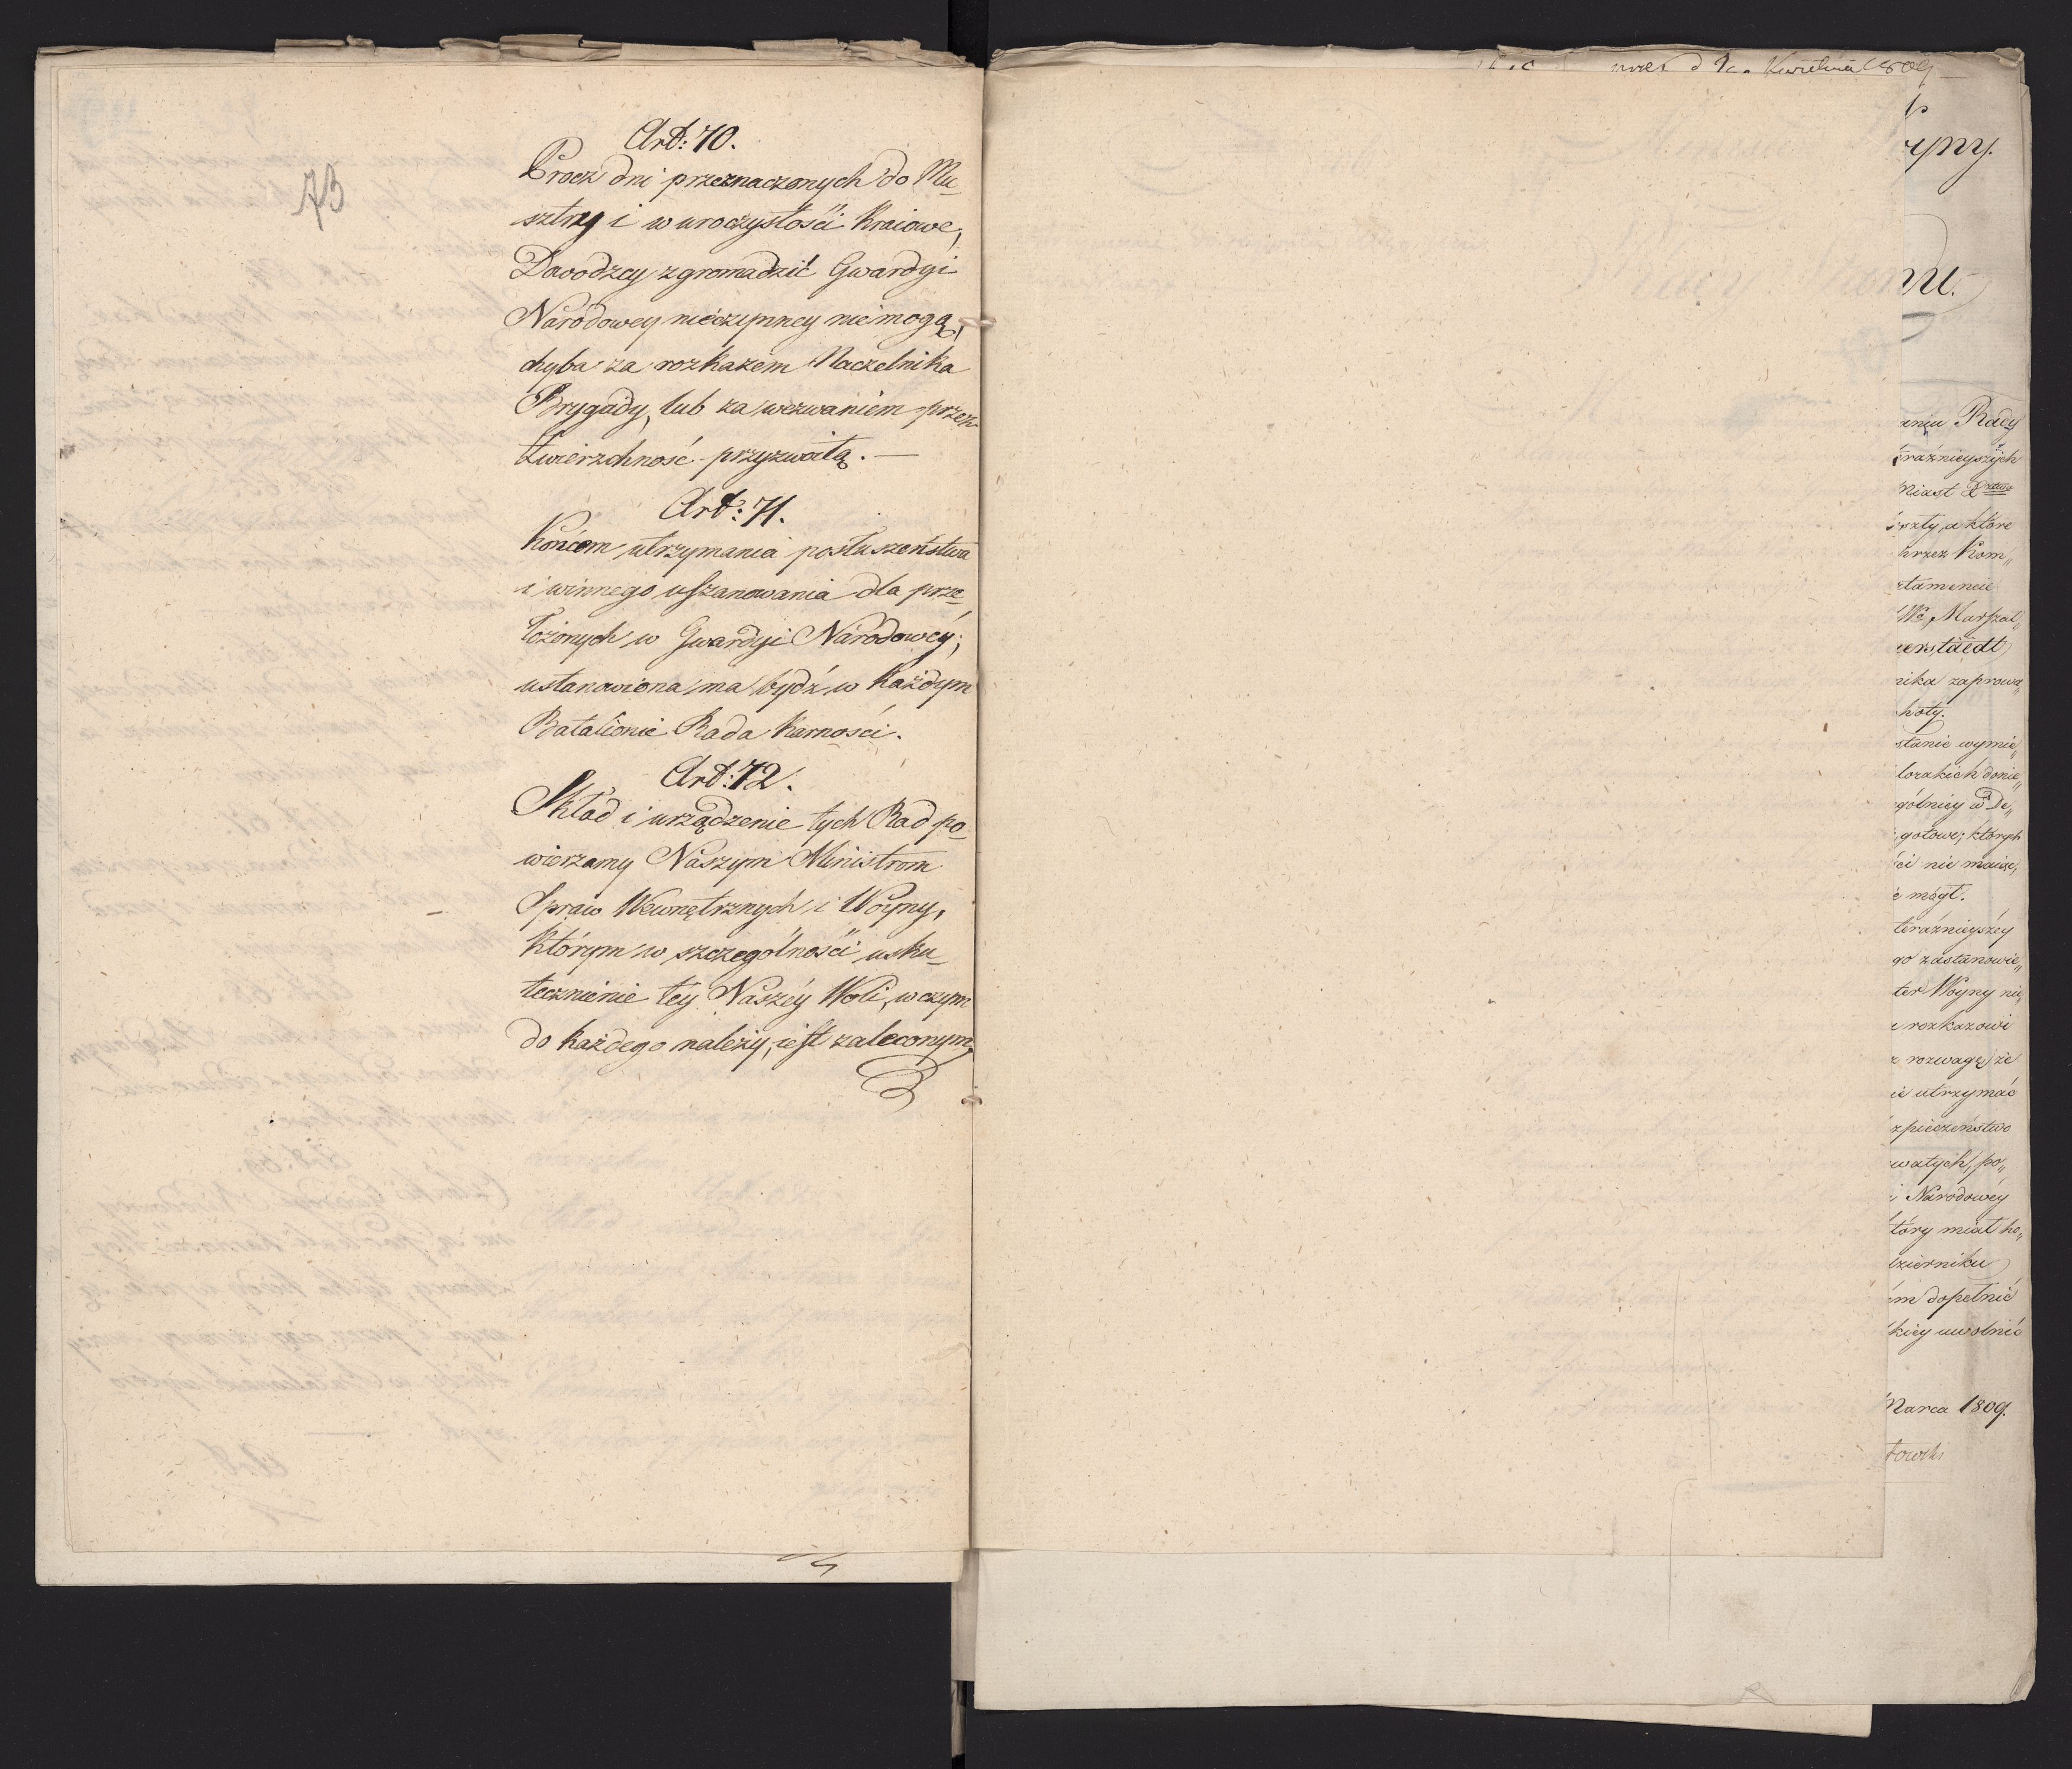 73
Art: 70.
Procz dni przeznaczonych do Mu-
sztry i w uroczystości Kraiowe,
Dowodzcy zgromadzić Gwardyi
Narodowey nieczynney nie mogą,
chyba za rozkazem Naczelnika
Brygady, lub za wezwaniem przez
Zwierzchność przyzwoitą. —
Art: 71.
Końcem utrzymania posłuszeństwa
i winnego uszanowania dla prze-
łożonych w Gwardyi Narodowéy;
ustanowiona ma bydź w każdym
Batalionie Rada Karności.
Art: 72.
Skład i urządzenie tych Rad po-
wierzamy Naszym Ministrom
Spraw Wewnętrznych i Woyny,
którym w szczególności usku-
tecznienie tey Naszéy Woli, w czym
do każdego należy, iest zaleconym.
Kwietnia 1809
yny.
du.
aniu Rady
raźnieyszych
Miast X
szty, a które
przez Kom„
rtamencie
We, Marszał„
erstaedt
nika zaprowa„
hoty.
stanie wymie„
lorakich donie„
gólniey w De„
gotowe; których
ści nie maiąc,
ć mógł.
teraźnieyszéy
go zastanowie„
ter Woyny nie„
rozkazowi
rozwagę że
ie utrzymać
zpieczeństwo
watych, po„
i Narodowéy
tóry miał ko„
dzierniku
ém dopełnić
kiéy uwolnić
Marca 1809.